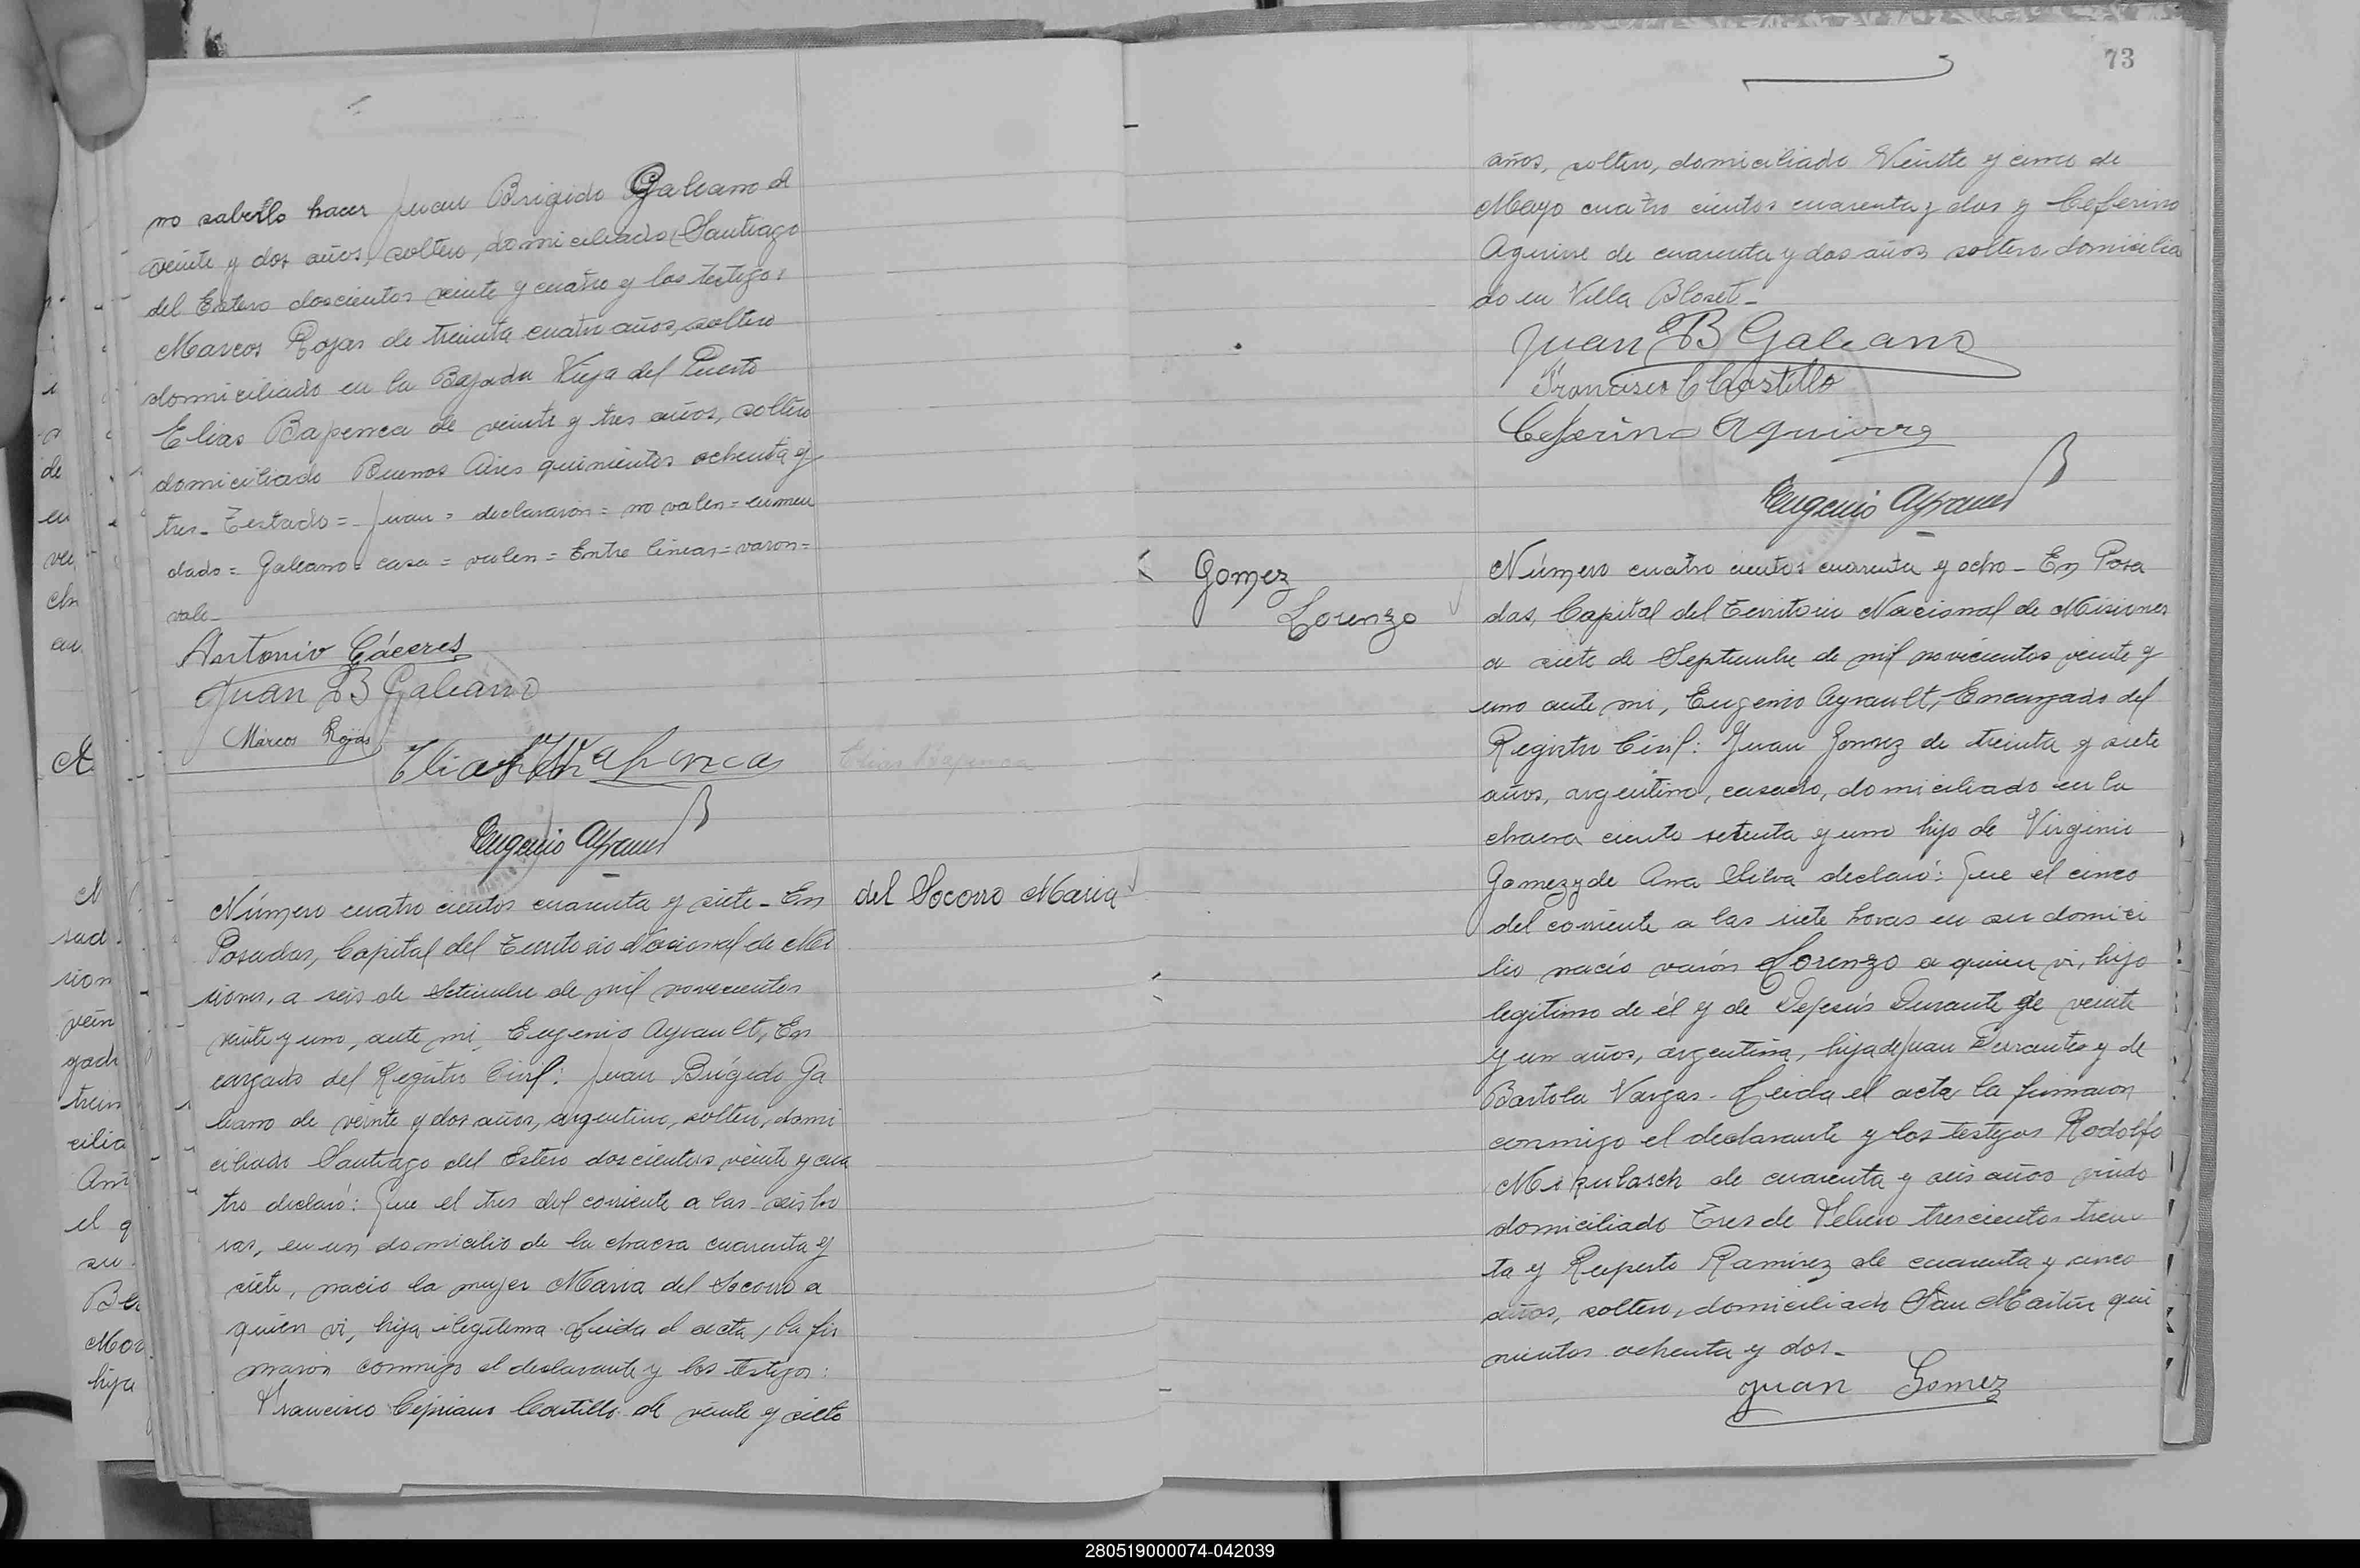 no saberlo hacer Juan Brigido Galeano de
veinte y dos años, soltero, domiciliado Santiago
del Estero doscientos veinte y cuatro y los testigos
Marcos Rojas de treinta cuatro años, soltero
domiciliado en la Bajada Vieja del Puerto
Elias Bapenca de veinte y tres años, soltero
domiciliado Buenos Aires quinientos ochenta y
tres_ Testado = Juan = declararon = no valen = enmen
dado = Galeano = casa = valen = Entre lineas = varon =
vale_
Antonio Cáceres
Juan B Galeano
Marcos Rojas
Elias Bapenca
Eugenio Ayrault
Número cuatro cientos cuarenta y siete_ En
Posadas, Capital del Territorio Nacional de Mi
siones, a seis de Setiembre de mil novecientos
veinte y uno, ante mi, Eugenio Ayrault, En
cargado del Registro Civil: Juan Brigido Ga
leano de veinte y dos años, argentino, soltero, domi
ciliado Santiago del Estero doscientos veinte y cua
tro declaró: Que el tres del corriente a las seis ho
ras, en un domicilio de la chacra cuarenta y
siete, nació la mujer Maria del Socorro a
quien vi, hija ilegítima. Leida el acta, la fir
maron conmigo el declarante y los testigos:
Francisco Cipriano Castillo de veinte y siete
del Socorro Maria
73
años, soltero, domiciliado Veinte y cinco de
Mayo cuatro cientos cuarenta y dos y Ceferino
Aguirre de cuarenta y dos años soltero domicilia
do en Villa Bloset_
Juan B Galeano
Francisco C Castillo
Ceferino Aguirre
Eugenio Ayrault
Gomez
Lorenzo
Número cuatro cientos cuarenta y ocho_ En Posa
das, Capital del Territorio Nacional de Misiones
a siete de Septiembre de mil novecientos veinte y
uno ante mi, Eugenio Ayrault, Encargado del
Registro Civil: Juan Gomez de treinta y siete
años, argentino, casado, domiciliado en la
chacra ciento setenta y uno hijo de Virginio
Gomez y de Ana Silva declaró: Que el cinco
del corriente a las siete horas en su domici
lio nació varón Lorenzo a quien vi, hijo
legitimo de él y de Dejesús Durante de veinte
y un años, argentina, hija de Juan Durante y de
Bartola Vargas. Leida el acta la firmaron
conmigo el declarante y los testigos Rodolfo
Mikulasch de cuarenta y seis años viudo
domiciliado Tres de Febrero trescientos trein
ta y Ruperto Ramirez de cuarenta y cinco
años, soltero, domiciliado San Martin qui
nientos ochenta y dos_
Juan Gomez
280519000074-042039